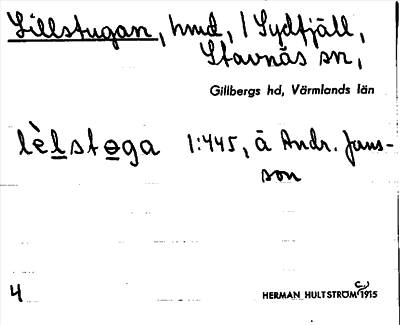 Lillstugan, hmd, i Sydfjäll,
Stavnäs sn,
Gillbergs hd, Värmlands län
lèlstøga 1:445, ä Andr. Jans-
son
4
HERMAN HULTSTRÖM 1915